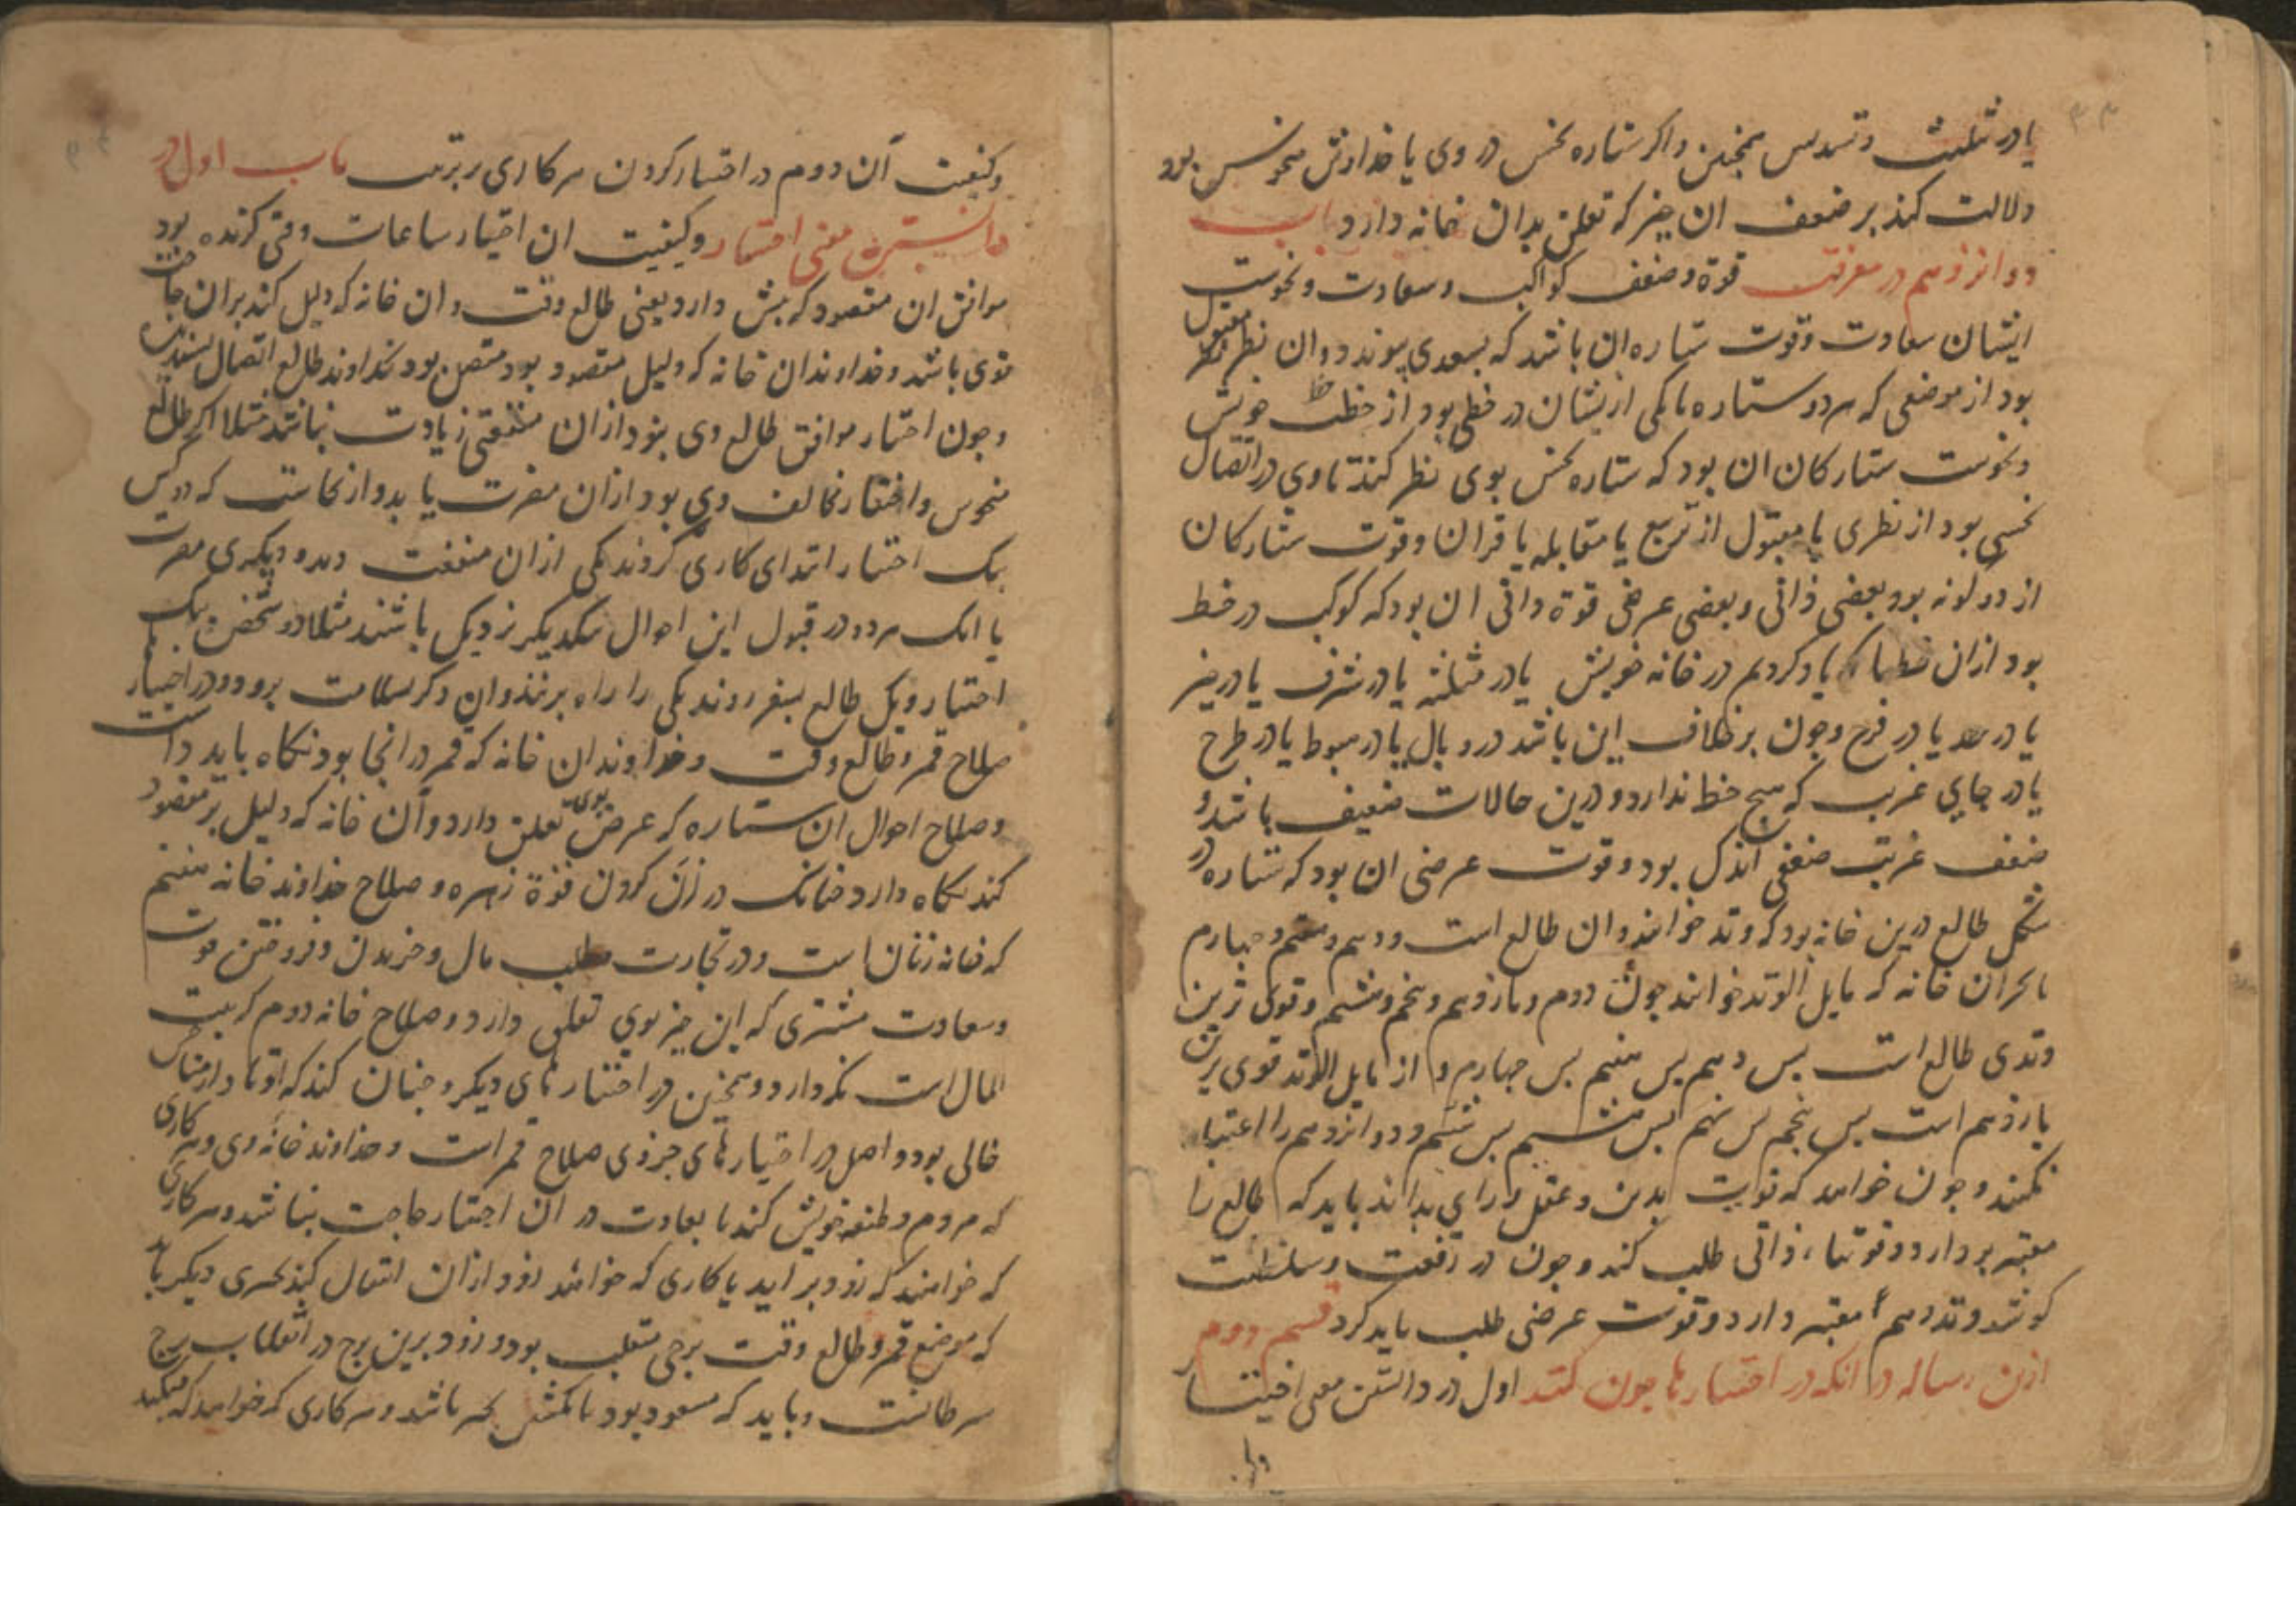 یا در تثلیث و تسدیس همچنین و اکر ستاره نحس در وی یا خداوندش منحوس بود
دلالت کند بر ضعف ان چیز که تعلق بدان خانه دارد باب
دوازدهم در معرفت قوة و ضعف کواکب و سعادت و نحوست
ایشان سعادت و قوت ستاره ان باشد که بسعدی پیوندد و ان نظر مقبول
بود از موضعی که هر دو ستاره یا یکی ازیشان در حظی بود از حظهاء خویش
و نحوست ستارکان ان بود که ستاره نحس بوی نظر کند تا وی در اتصال
نحسی بود از نظری نا مقبول از تربیع یا مقابله یا قران و قوت ستارکان
از دو کونه بود بعضی ذاتی و بعضی عرضی قوة ذاتی ان بود که کوکب در حظ
بود ازان حظها که یاد کردیم در خانه خویش یا در مثلثه یا در شرف یا در حیز
یا در حد یا در فرح و چون بر خلاف این باشد در وبال یا در هبوط یا در طرح
یا در جایی غریب که هیچ حظ ندارد و درین حالات ضعیف باشد و
ضعف غربت ضعفی اندک بود و قوت عرضی ان بود که ستاره در
شکل طالع درین خانه بود که وتد خوانند و ان طالع است و دهم و هفتم و چهارم
یا در ان خانه که مایل الوتد خوانند چون دوم و یازدهم و پنجم و هشتم و قوی ترین
وتدی طالع است پس دهم پس هفتم پس چهارم و از مایل الوتد قوی ترین
یازدهم است پس پنجم پس نهم پس هشتم پس ششم و دوازدهم را اعتبار
نکنند و چون خواهد که قوت بدن و عقل و رای بداند باید که طالع را
معتبر بر دارد و قوتهاء ذاتی طلب کند و چون در رفعت و سلطنت
کوشد وتد دهم معتبر دارد و قوت عرضی طلب باید کرد قسم دوم
ازین رساله در انکه در اختیارها چون کنند اول در دانستن معنی اختیار
و کیفیت آن دوم در اختیار کردن هر کاری بر ترتیب باب اول در
دانستن معنی اختیار و کیفیت ان اختیار ساعات وقتی کزیده بود
موافق ان مقصود که پیش دارد یعنی طالع وقت و ان خانه که دلیل کند بران حاجت
قوی باشد و خداوند ان خانه که دلیل مقصود بود متصل بود بخداوند طالع اتصال پسندیده
و چون اختیار موافق طالع وی بنود ازان منفعتی زیادت نباشد مثلا اکر طالع کس
منحوس و اختیار مخالف وی بود ازان مضرت یابد و از نجاست که دو کس
بیک اختیار ابتدای کاری کردند یکی ازان منفعت دید و دیکری مضرت
یا انک هر دو در قبول این احوال بیکدیکر نزدیک باشند مثلا دو شخص بیک
اختیار و یک طالع بسفر روند یکی را راه برنند و ان دکر بسلامت برود و در اختیار
صلاح قمر و طالع وقت و خداوند ان خانه که قمر در انجا بود نکاه باید داشت
و صلاح احوال ان ستاره که عرض بوی تعلق دارد و آن خانه که دلیل بر مقصود
کند نکاه دارد چنانک در زن کردن قوة زهره و صلاح خداوند خانه هفتم
که خانه زنان است و در تجارت و طلب مال و خریدن و فروختن قوت
و سعادت مشتری که این چیز بوی تعلق دارد و صلاح خانه دوم که بیت
المال است نکه دارد و همچنین در اختیارهای دیکر و چنان کند که اوتاد از مناحس
خالی بود و اصل در اختیارهای جزوی صلاح قمر است و خداوند خانه وی و هر کاری
که مردم وظیفه خویش کند یا بعادت در ان اختیار حاجت نباشد و هر کاری
که خواهند که زود بر اید یا کاری که خواهند زود ازان انتقال کنند بچیزی دیکر باید
که موضع قمر و طالع وقت برجی منقلب بود و زودترین برج در انقلاب برج
سرطانست و باید که مسعود بود تا بخیر باشد و هر کاری که خواهند که